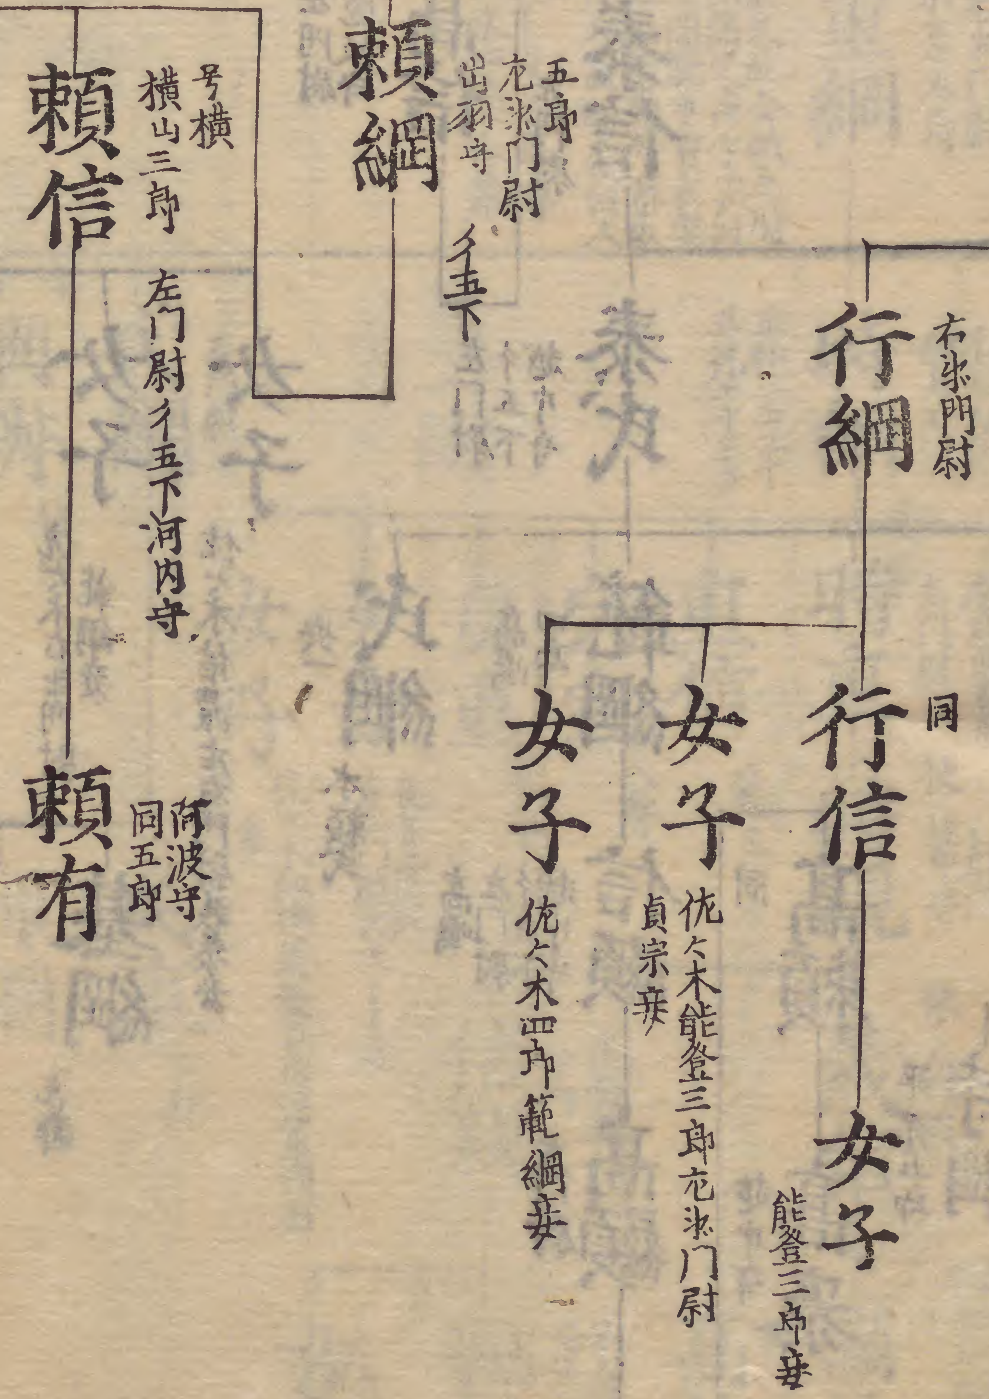 右衛門尉
行綱
同
行信
女子
能登三郎妾
女子
佐々木能登三郎左衛門尉
貞宗妾
女子
佐々木四郎範綱妾
五郎
左衛門尉
出羽守
従五下
頼綱
号横
横山三郎
左門尉従五下河内守
頼信
阿波守
同五郎
頼有